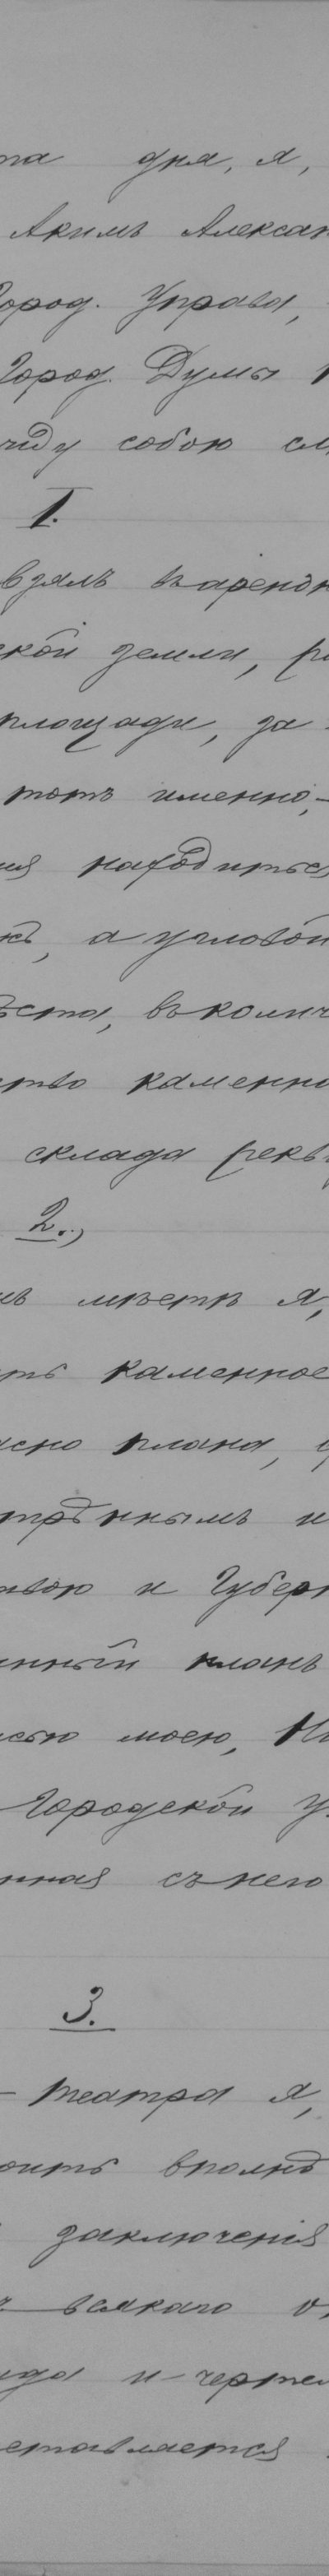 та дня, я,
Акимъ Алексан
Город. Управа,
Город. Думы
жду собою сл
1.
взялъ въ аренд
ской земли, ра
площади, за
тотъ именно,-
ия находиться
къ, а угловой
ѣста, въ колич
ство каменно
склада рекви
2.,
мъ мѣстѣ я,
ть каменное
асно плана,
нымъ и
тою и Губерн
нный планъ
сью моею, Но
Городской У
нная съ него
3.
- театра я,
оить вполнѣ
заключенія
всякаго о
ида и чертеж
ставляется